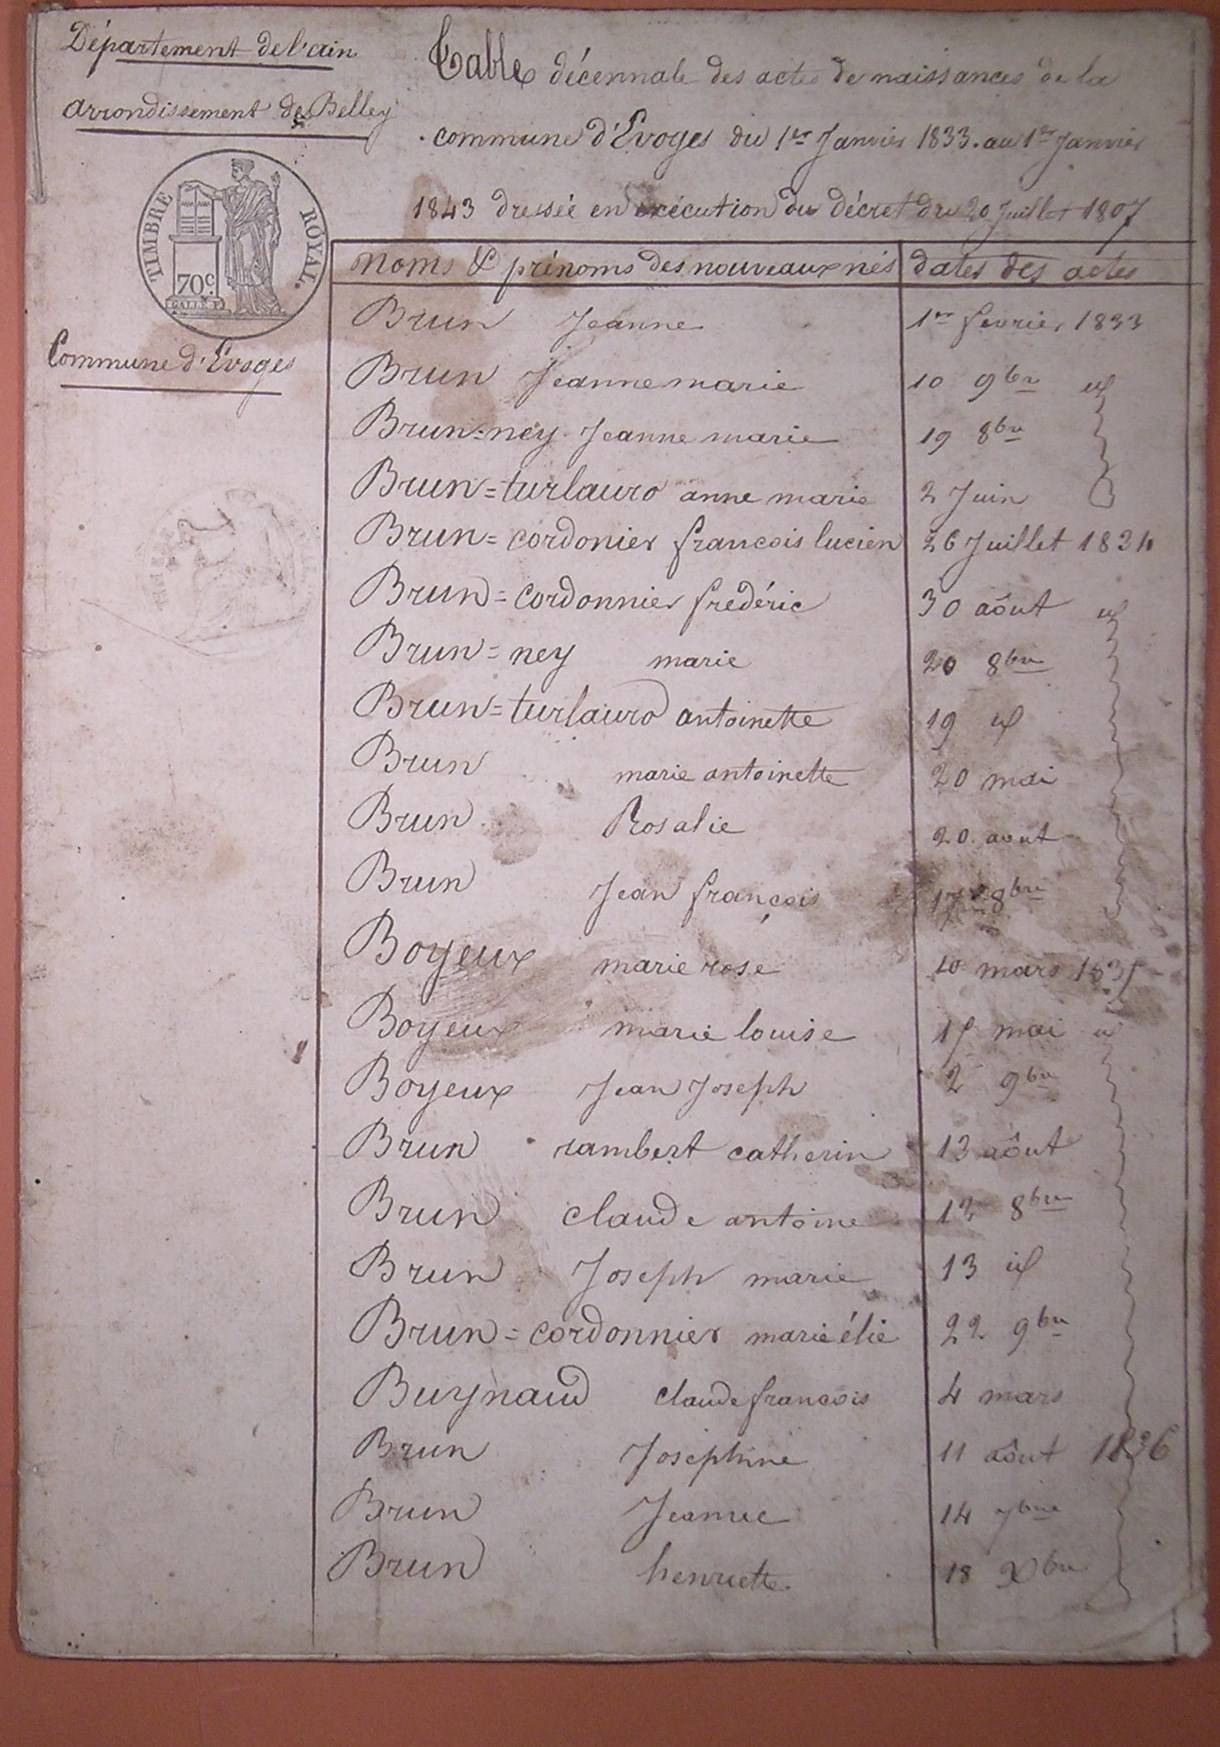 Département de l'ain
arrondissement de Belley
TIMBRE ROYAL.
70c.
Commune d'Evoges
Table décennale des actes de naissances de la
commune d'Evoges du 1er Janvier 1833. au 1er Janvier
1843 dressée en exécution du décret du 20 Juillet 1807
noms & prénoms des nouveaux nés dates des actes
Brun Jeanne 1er fevrier 1833
Brun Jeanne marie 10 9bre id
Brun=ney Jeanne marie 19 8bre
Brun=turlauro anne marie 2 Juin
Brun=cordonier francois lucien 26 Juillet 1834
Brun=cordonnier frédéric 30 aôut id
Brun=ney marie 20 8bre
Brun=turlauro antoinette 19 id
Brun marie antoinette 20 mai
Brun Rosalie 20 aout
Brun Jean françois 17 8bre
Boyeux marie rose 10 mars 1835
Boyeux marie louise 15 mai id
Boyeux Jean Joseph 2 9bre
Brun rambert catherin 13 aôut
Brun claude antoine 12 8bre
Brun Joseph marie 13 id
Brun=cordonnier marie élie 22 9bre
Buynaud claude francois 4 mars
Brun Joséphine 11 aôut 1836
Brun Jeanne 14 7bre
Brun henriette 18 Xbre